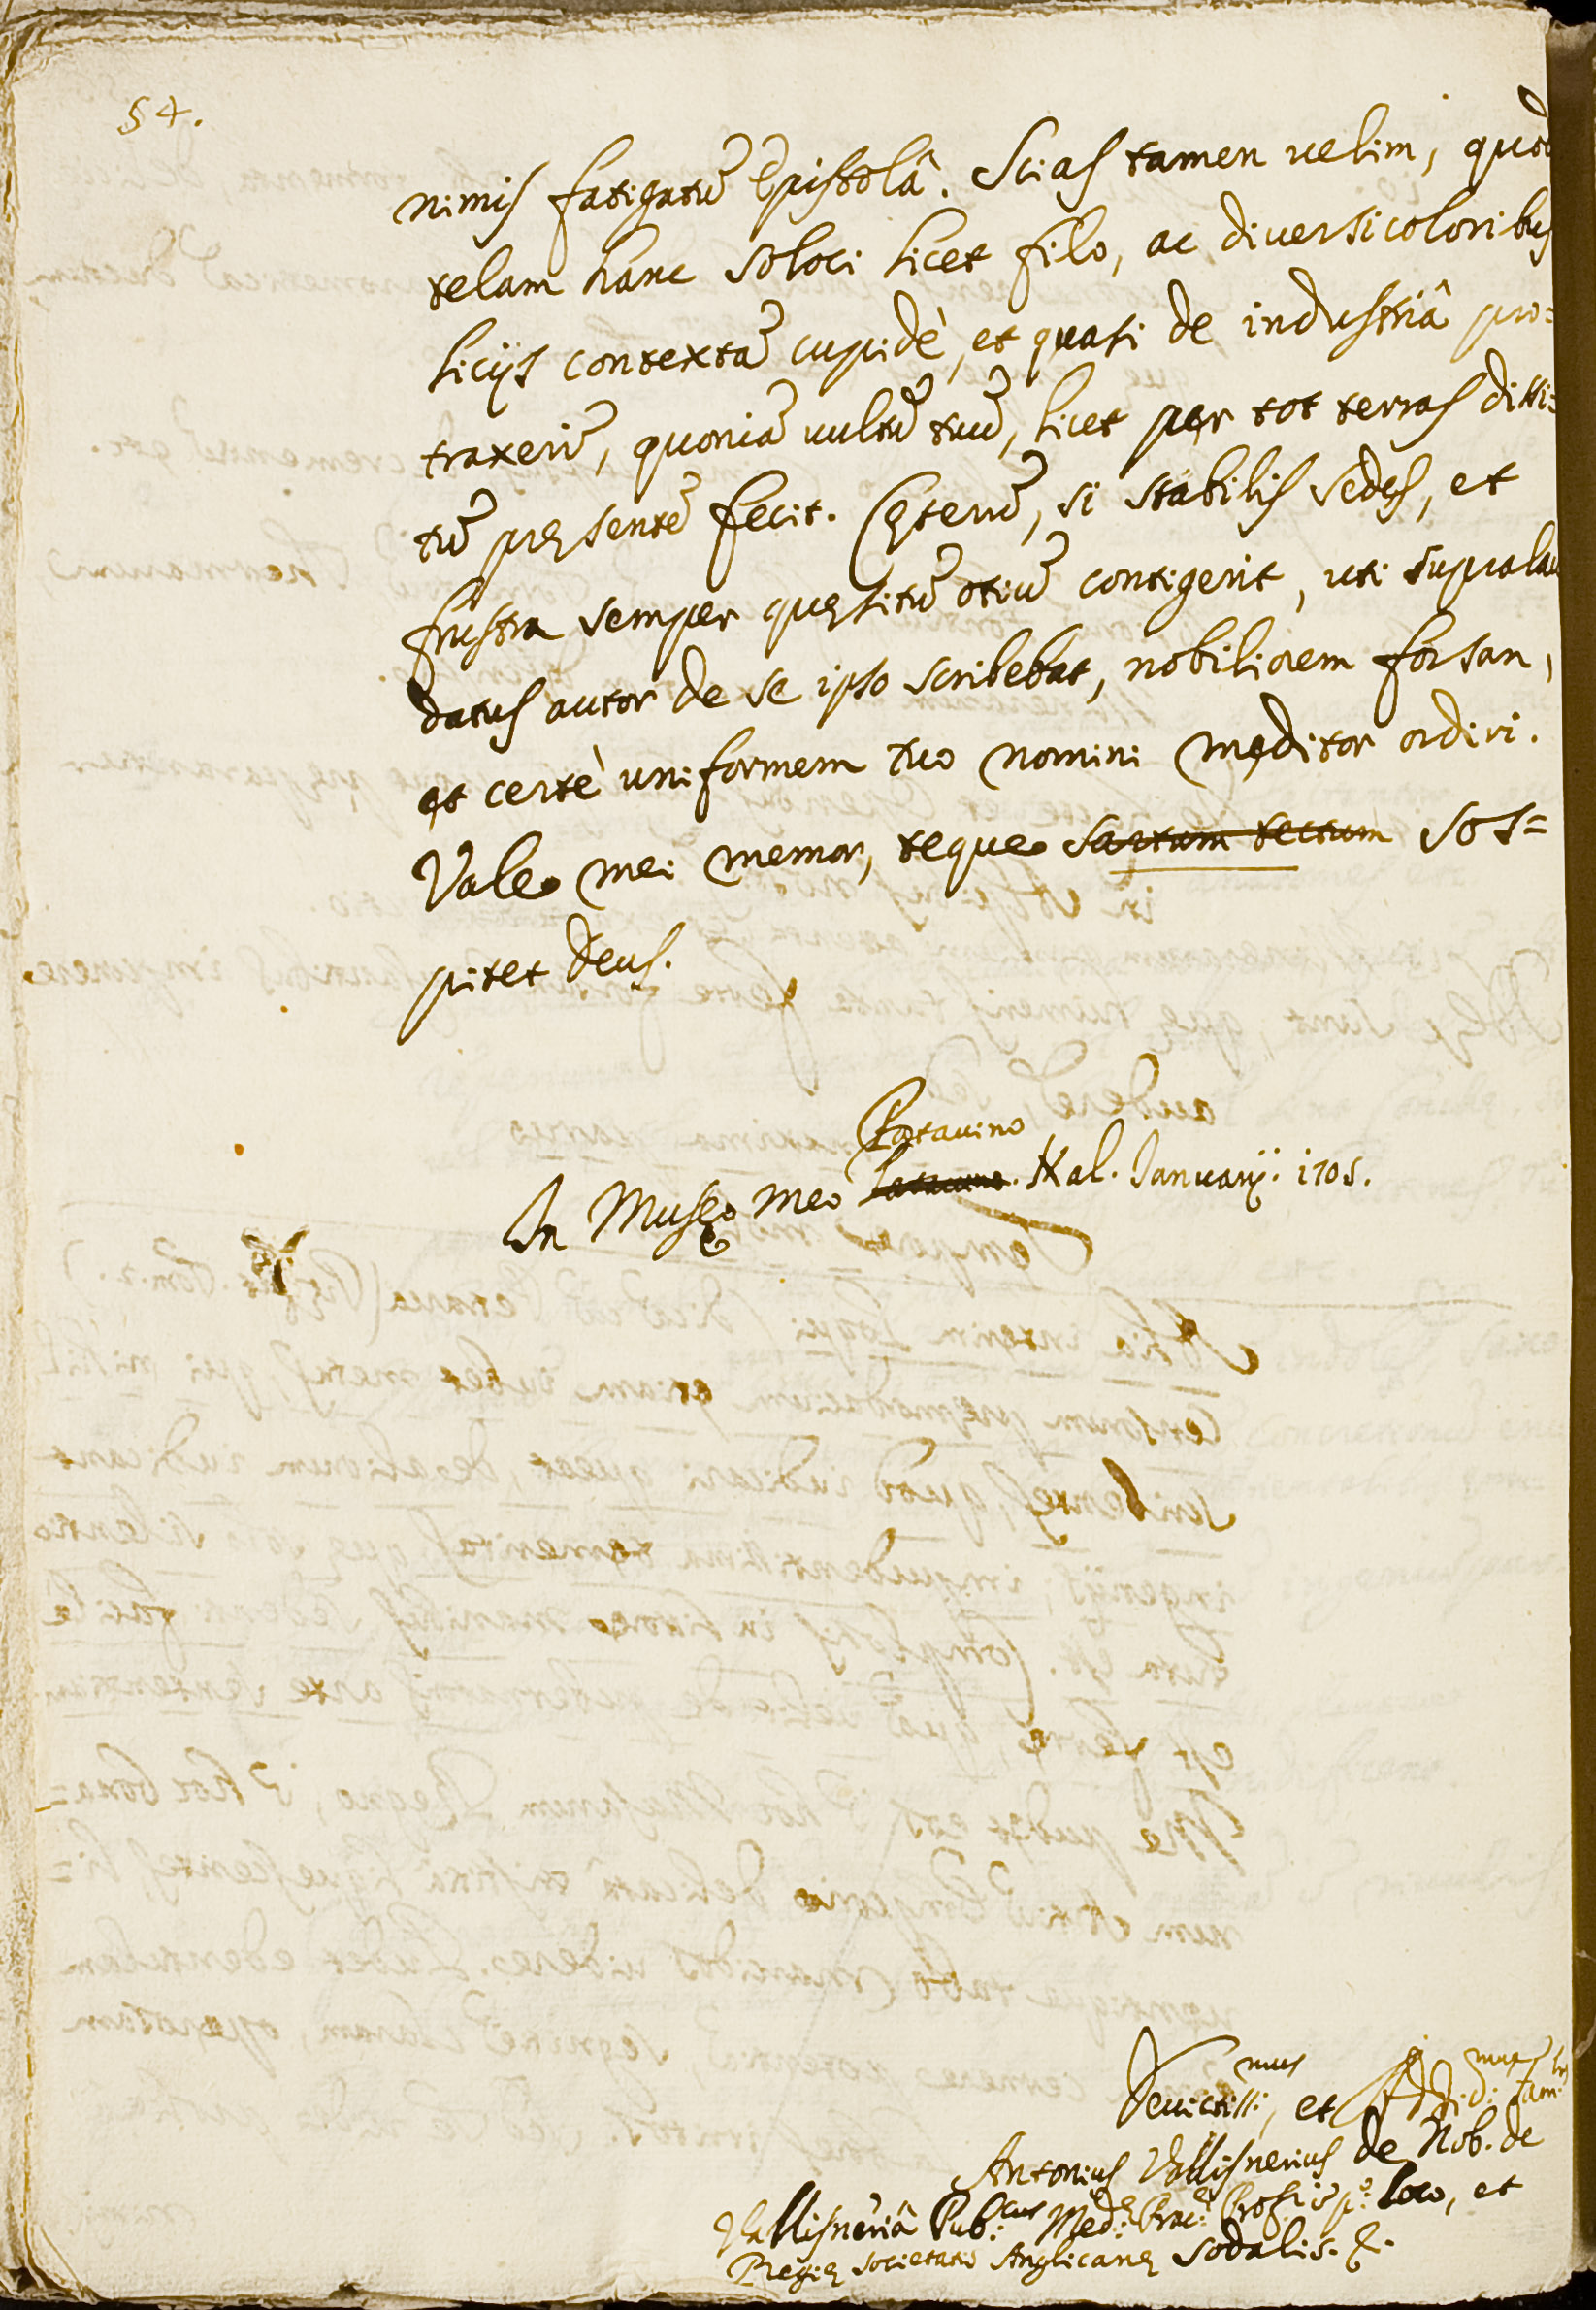 54.
nimis fatigatū Epistolâ. Scias tamen velim, quod
telam hanc soloci licet filo, ac diversicoloribus
licijs contextā cupidè, et quasi de industriâ pro=
traxerī, quoniā vultū tuū, licet per tot terras dissi=
tū pręsentē fecit. Cęterū, si stabilis sedes, et
frustra semper quęsitū otiū contigerit, uti supralau
datus autor de se ipso scribebat, nobiliorem forsan,
et certè uniformem tuo nomini meditor ordiri.
Vale mei memor, teque sartum tectum sos=
pitet Deus.
Patavino
In Musęo meo Kal. Januarij. 1705.
mus mus
Devictiss:, et Addict:
Antonius Vallisnerius de Nob. de
Vallisneriâ Pub:cus Med: Prac: Profr. in p:o loco, et
Regię Societatis Anglicanę Sodalis. &.